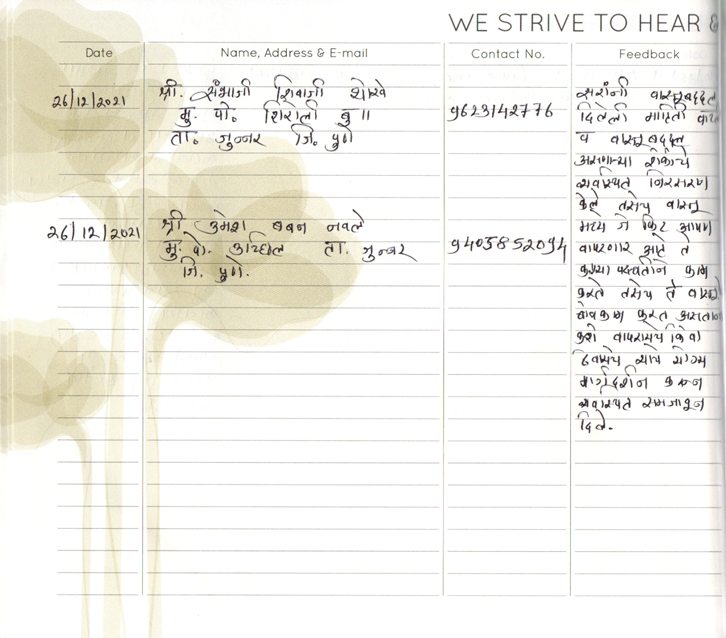 WE STRIVE TO HEAR &
Date Name, Address & E-mail Contact No. Feedback
26/12/2021
श्री. संभाजी शिवाजी
मु. पो. शिरोली बु॥
ता. जुन्नर जि. पुणे
9623142776
26/12/2021
श्री उमेश बबन नवले
मु. पो. ता. जुन्नर
जि. पुणे.
9405852094
सरांनी वास्तूबद्दल
दिलेली माहिती
व वास्तूबद्दल
असणाऱ्या शंकांचे
व्यवस्थित निरसरण
केले तसेच वास्तु
मध्ये जे किट आपण
वापरणार आहे ते
कश्या पध्दतीने काम
करते तसेच ते वास्तूचे
बांधकाम करत असताना
कसे वापरायचे किंवा
ठेवायचे याचे योग्य
मार्गदर्शन करून
व्यवस्थित समजावून
दिले.